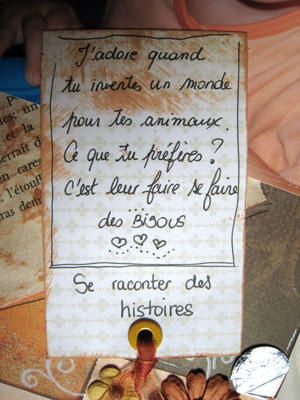 J'adore quand
tu inventes un monde
pour tes animaux.
Ce que tu préfères ?
c'est leur faire se faire
des BISOUS
Se raconter des
histoires